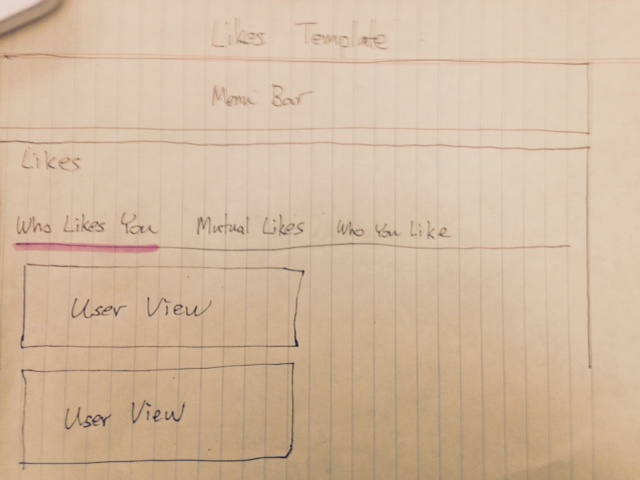 Likes Template
Menu Bar
Likes
Who Likes You Mutual Likes Who You Like
User View
User View